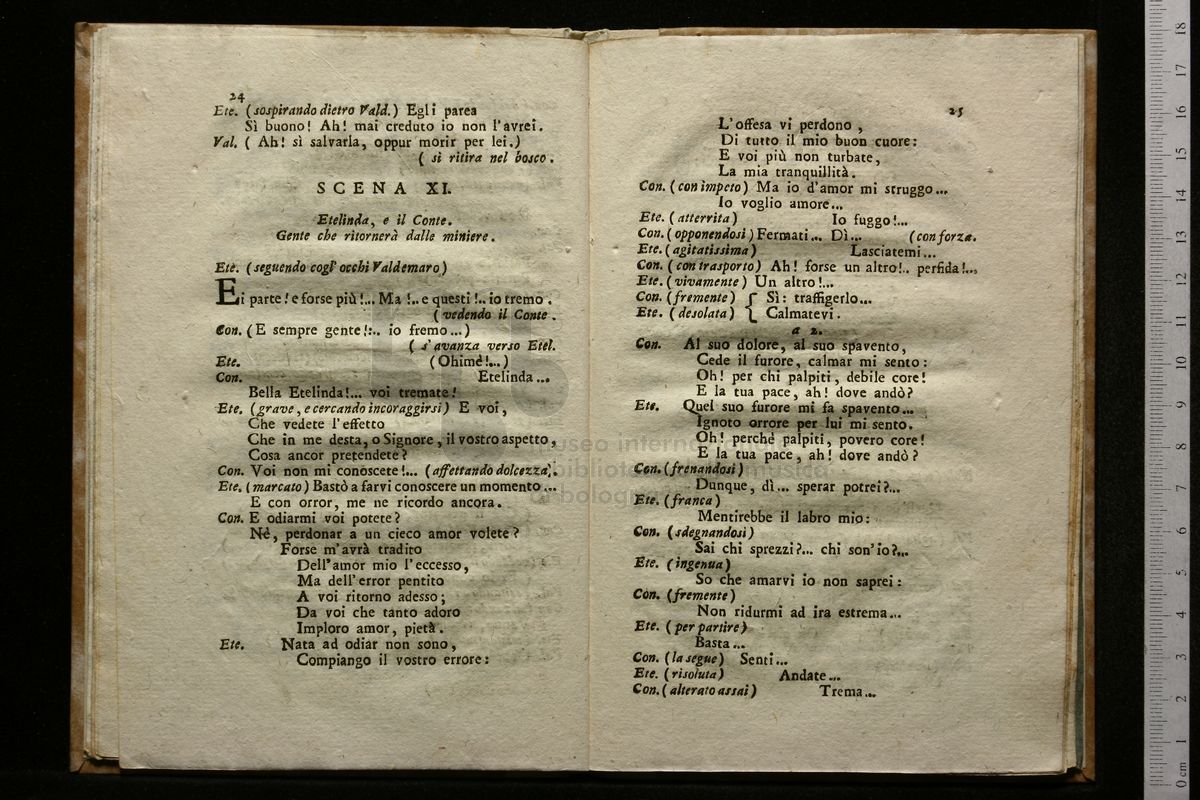 24
Ete. (sospirando dietro Vald.) Egli parea
Sì buono! Ah! mai creduto io non l'avrei.
Val. ( Ah! sì salvarla, oppur morir per lei.)
( si ritira nel bosco.
SCENA XI.
Etelinda, e il Conte.
Gente che ritornerà dalle miniere.
Ete. (seguendo cogl' occhi Valdemaro)
Ei parte! e forse più!... Ma!.. e questi!.. io tremo.
(vedendo il Conte.
Con. (E sempre gente!:.. io fremo...)
( s'avanza verso Etel.
Ete. (Ohimè!...)
Con. Etelinda...
Bella Etelinda!... voi tremate!
Ete. (grave, e cercando incoraggirsi) E voi,
Che vedete l'effetto
Che in me desta, o Signore, il vostro aspetto,
Cosa ancor pretendete?
Con. Voi non mi conoscete!... (affettando dolcezza).
Ete. (marcato) Bastò a farvi conoscere un momento...
E con orror, me ne ricordo ancora.
Con. E odiarmi voi potete?
Nè, perdonar a un cieco amor volete?
Forse m'avrà tradito
Dell'amor mio l'eccesso,
Ma dell'error pentito
A voi ritorno adesso;
Da voi che tanto adoro
Imploro amor, pietà.
Ete. Nata ad odiar non sono,
Compiango il vostro errore:
25
L'offesa vi perdono,
Di tutto il mio buon cuore:
E voi più non turbate,
La mia tranquillità.
Con. (con impeto) Ma io d'amor mi struggo...
Io voglio amore...
Ete. (atterrita) Io fuggo!...
Con. (opponendosi) Fermati... Dì... (con forza.
Ete. (agitatissima) Lasciatemi...
Con. (con trasporto) Ah! forse un altro!.. perfida!...
Ete. (vivamente) Un altro!...
Con. (fremente) { Sì: traffigerlo...
Ete. (desolata) { Calmatevi.
a 2.
Con. Al suo dolore, al suo spavento,
Cede il furore, calmar mi sento:
Oh! per chi palpiti, debile core!
E la tua pace, ah! dove andò?
Ete. Quel suo furore mi fa spavento...
Ignoto orrore per lui mi sento.
Oh! perchè palpiti, povero core!
E la tua pace, ah! dove andò?
Con. (frenandosi)
Dunque, dì... sperar potrei?...
Ete. (franca)
Mentirebbe il labro mio:
Con. (sdegnandosi)
Sai chi sprezzi?... chi son'io?...
Ete. (ingenua)
So che amarvi io non saprei:
Con. (fremente)
Non ridurmi ad ira estrema...
Ete. (per partire)
Basta...
Con. (la segue) Senti...
Ete. (risoluta) Andate...
Con. (alterato assai) Trema...
museo internazionale
biblioteca della musica
di bologna
0 cm 1 2 3 4 5 6 7 8 9 10 11 12 13 14 15 16 17 18